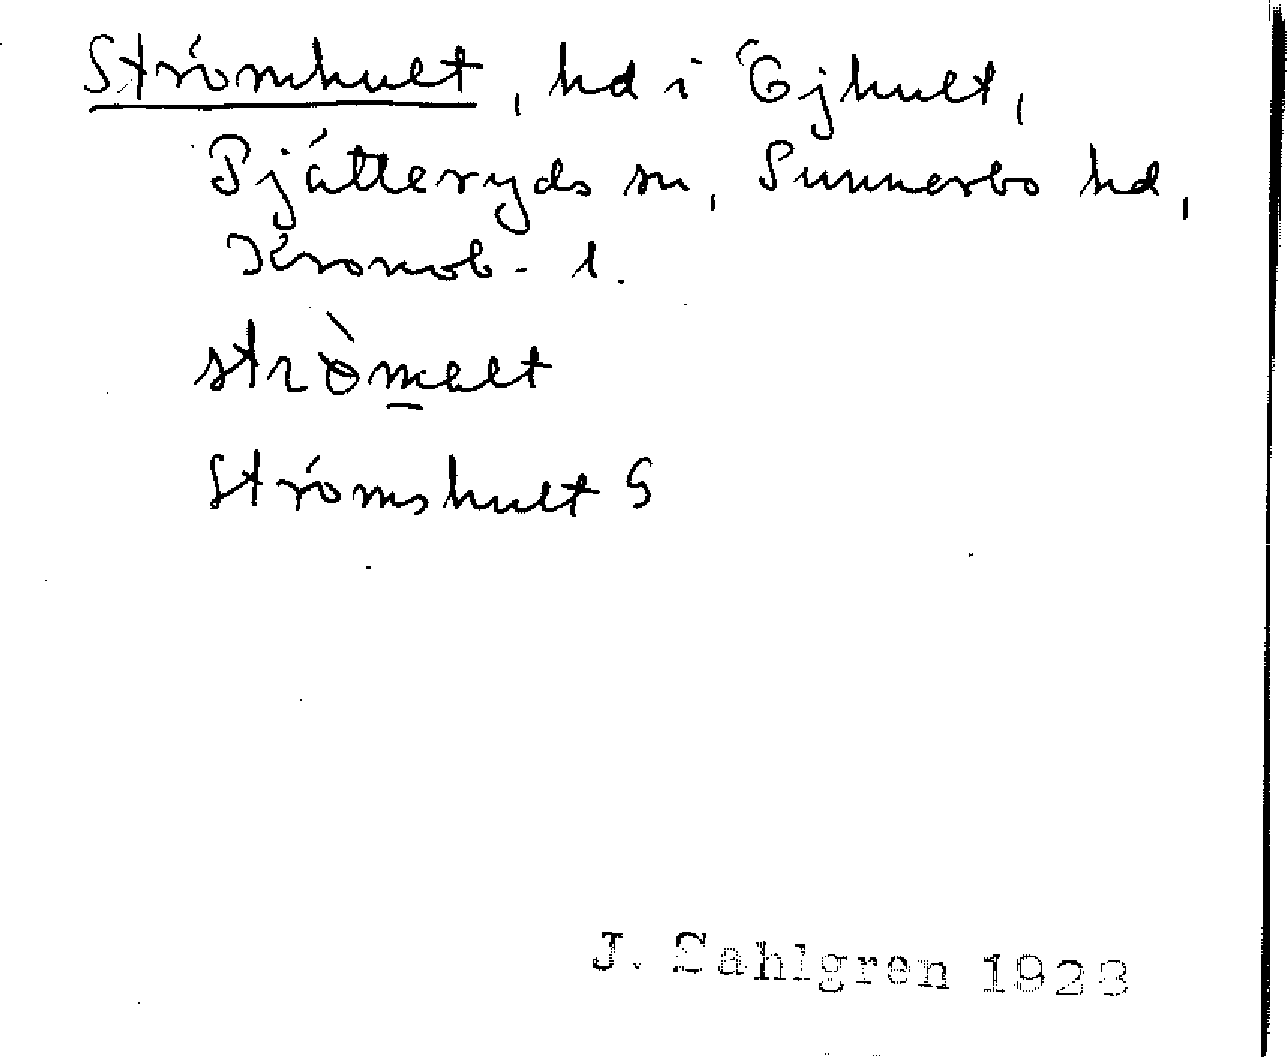 Strömhult, hd i Ejhult,
Pjätteryds sn, Sunnerbo hd,
Kronob. l.
strὼmelt
Strömshult G
J. Sahlgren 1923